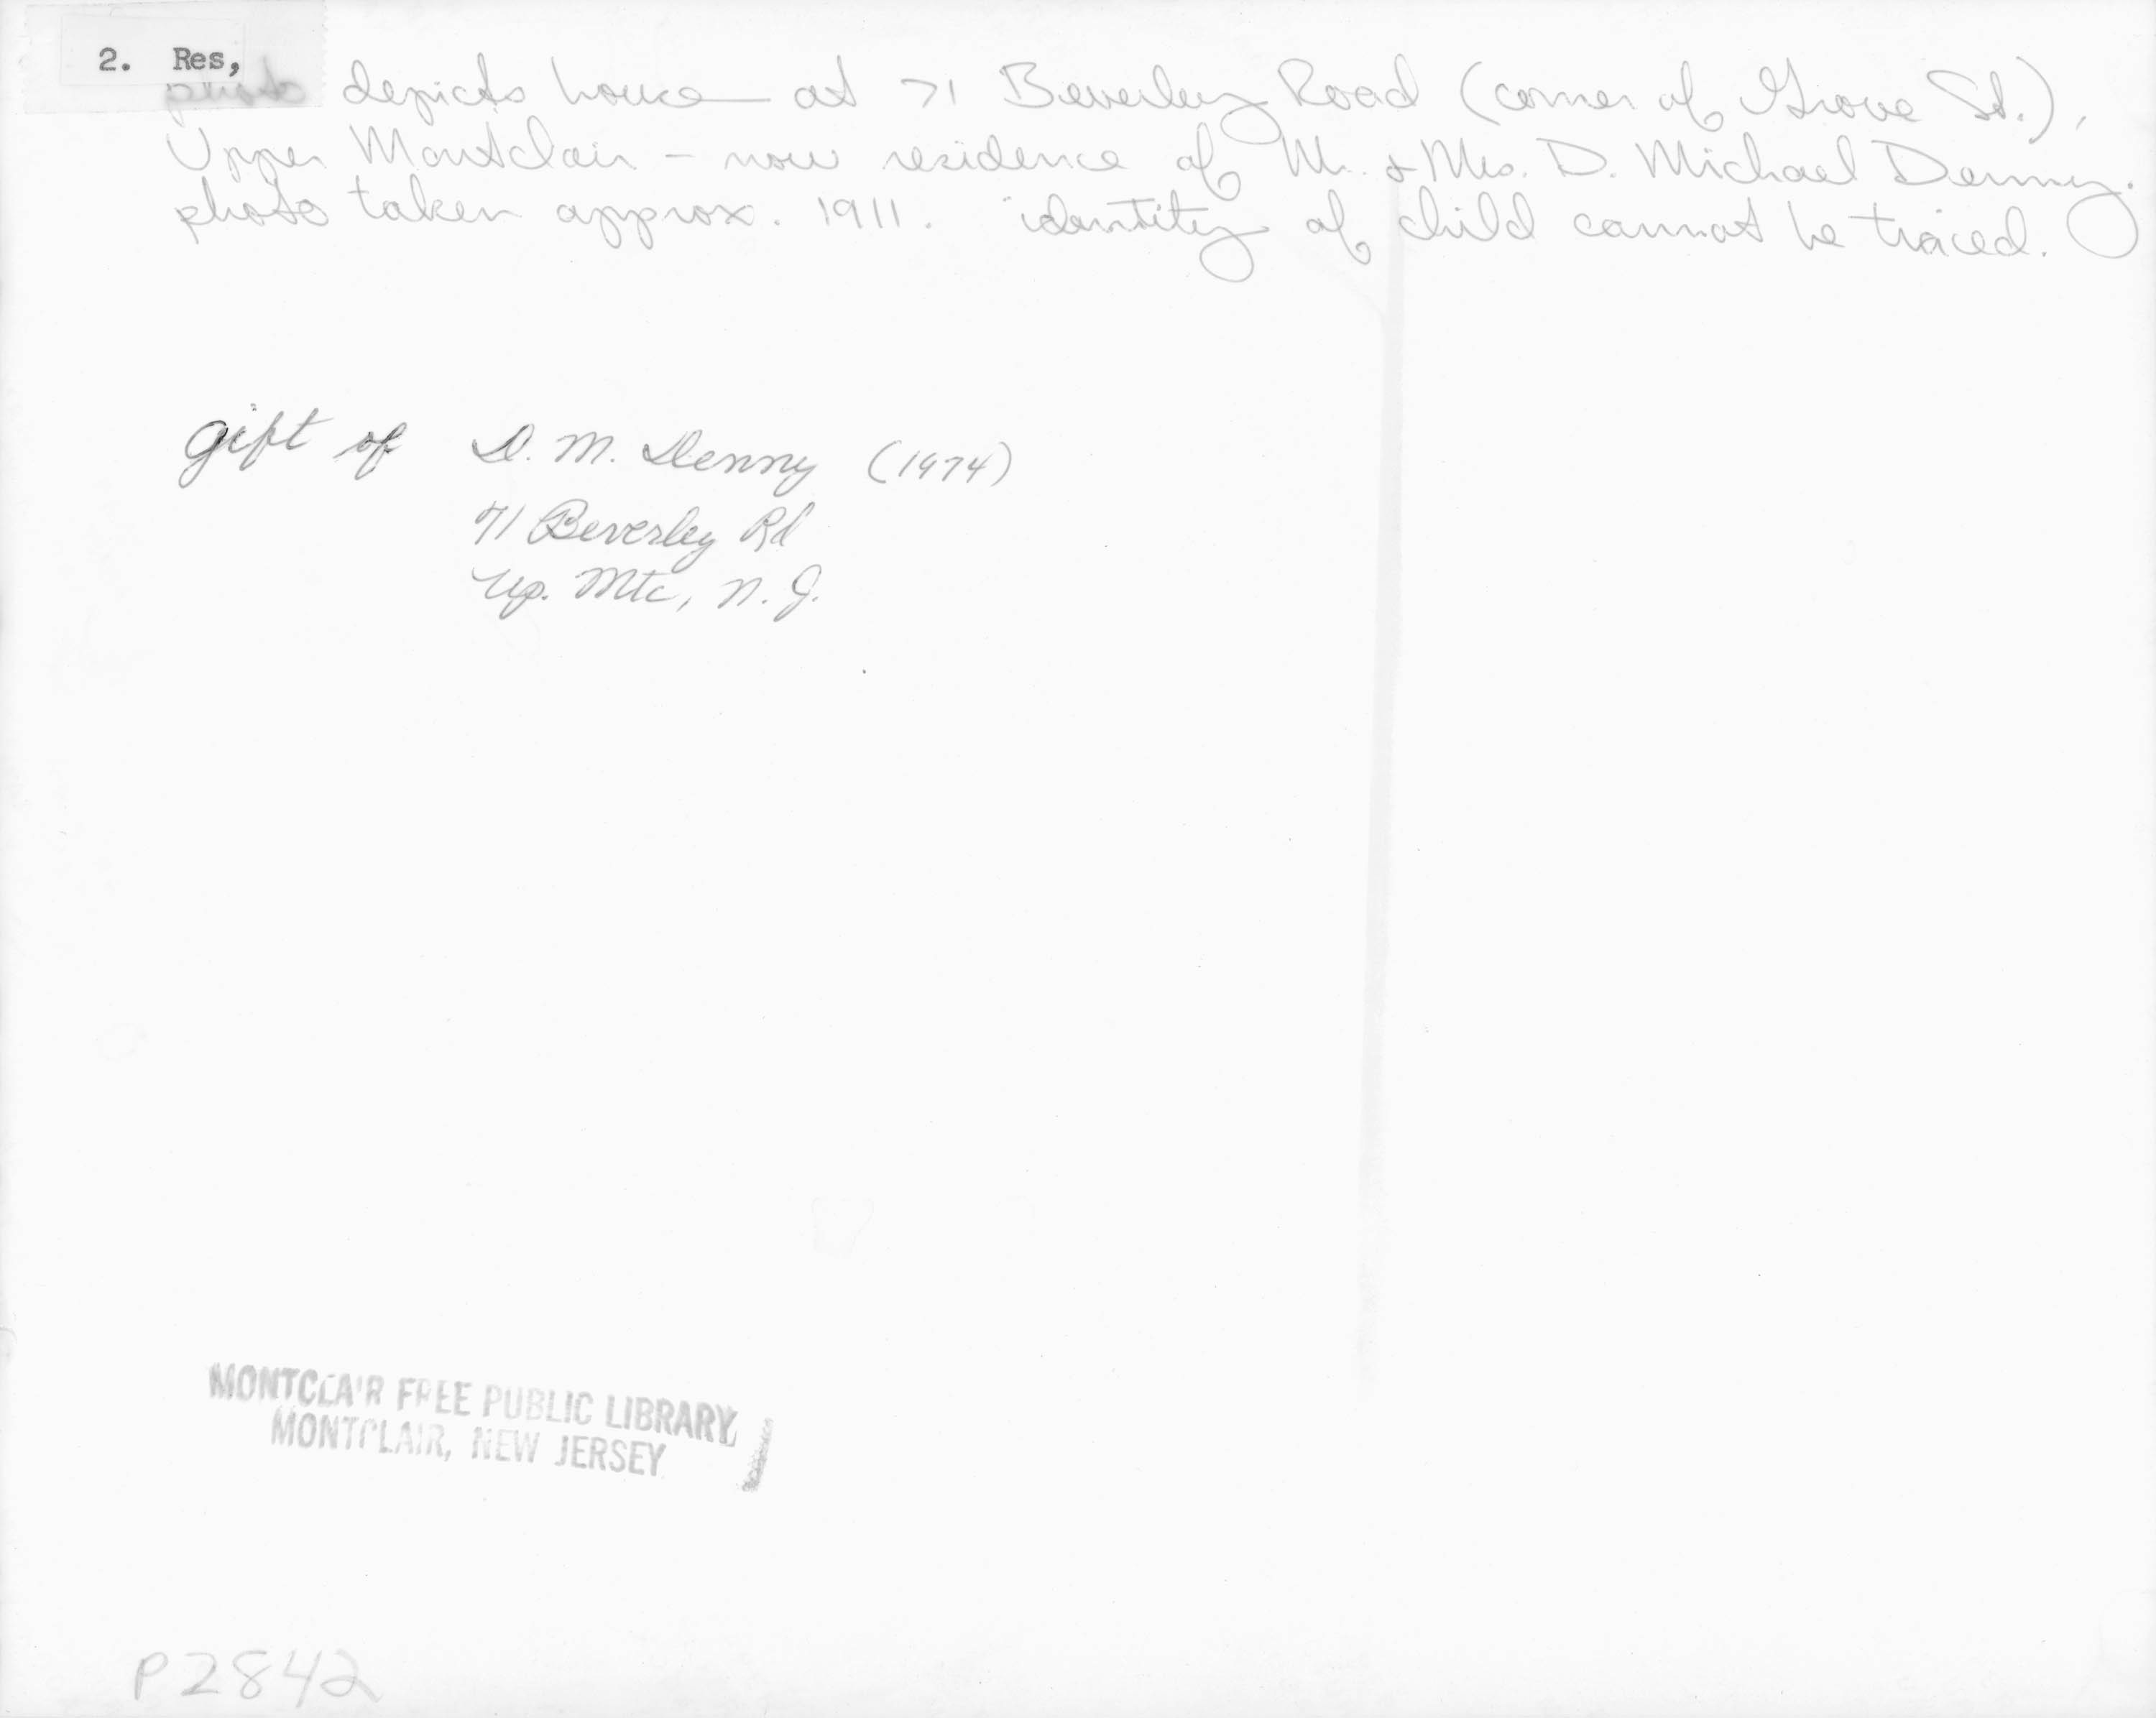 2. Res,
photo depicts house at 71 Beverley Road (corner of Grove St.),
Upper Montclair - now residence of Mr. & Mrs. D. Michael Denny.
photo taken approx. 1911. identity of child cannot be traced.
gift of D. M. Denny (1974)
71 Beverley Rd
Up. Mtc, N. J.
MONTCLAIR FREE PUBLIC LIBRARY
MONTCLAIR, NEW JERSEY
P2842